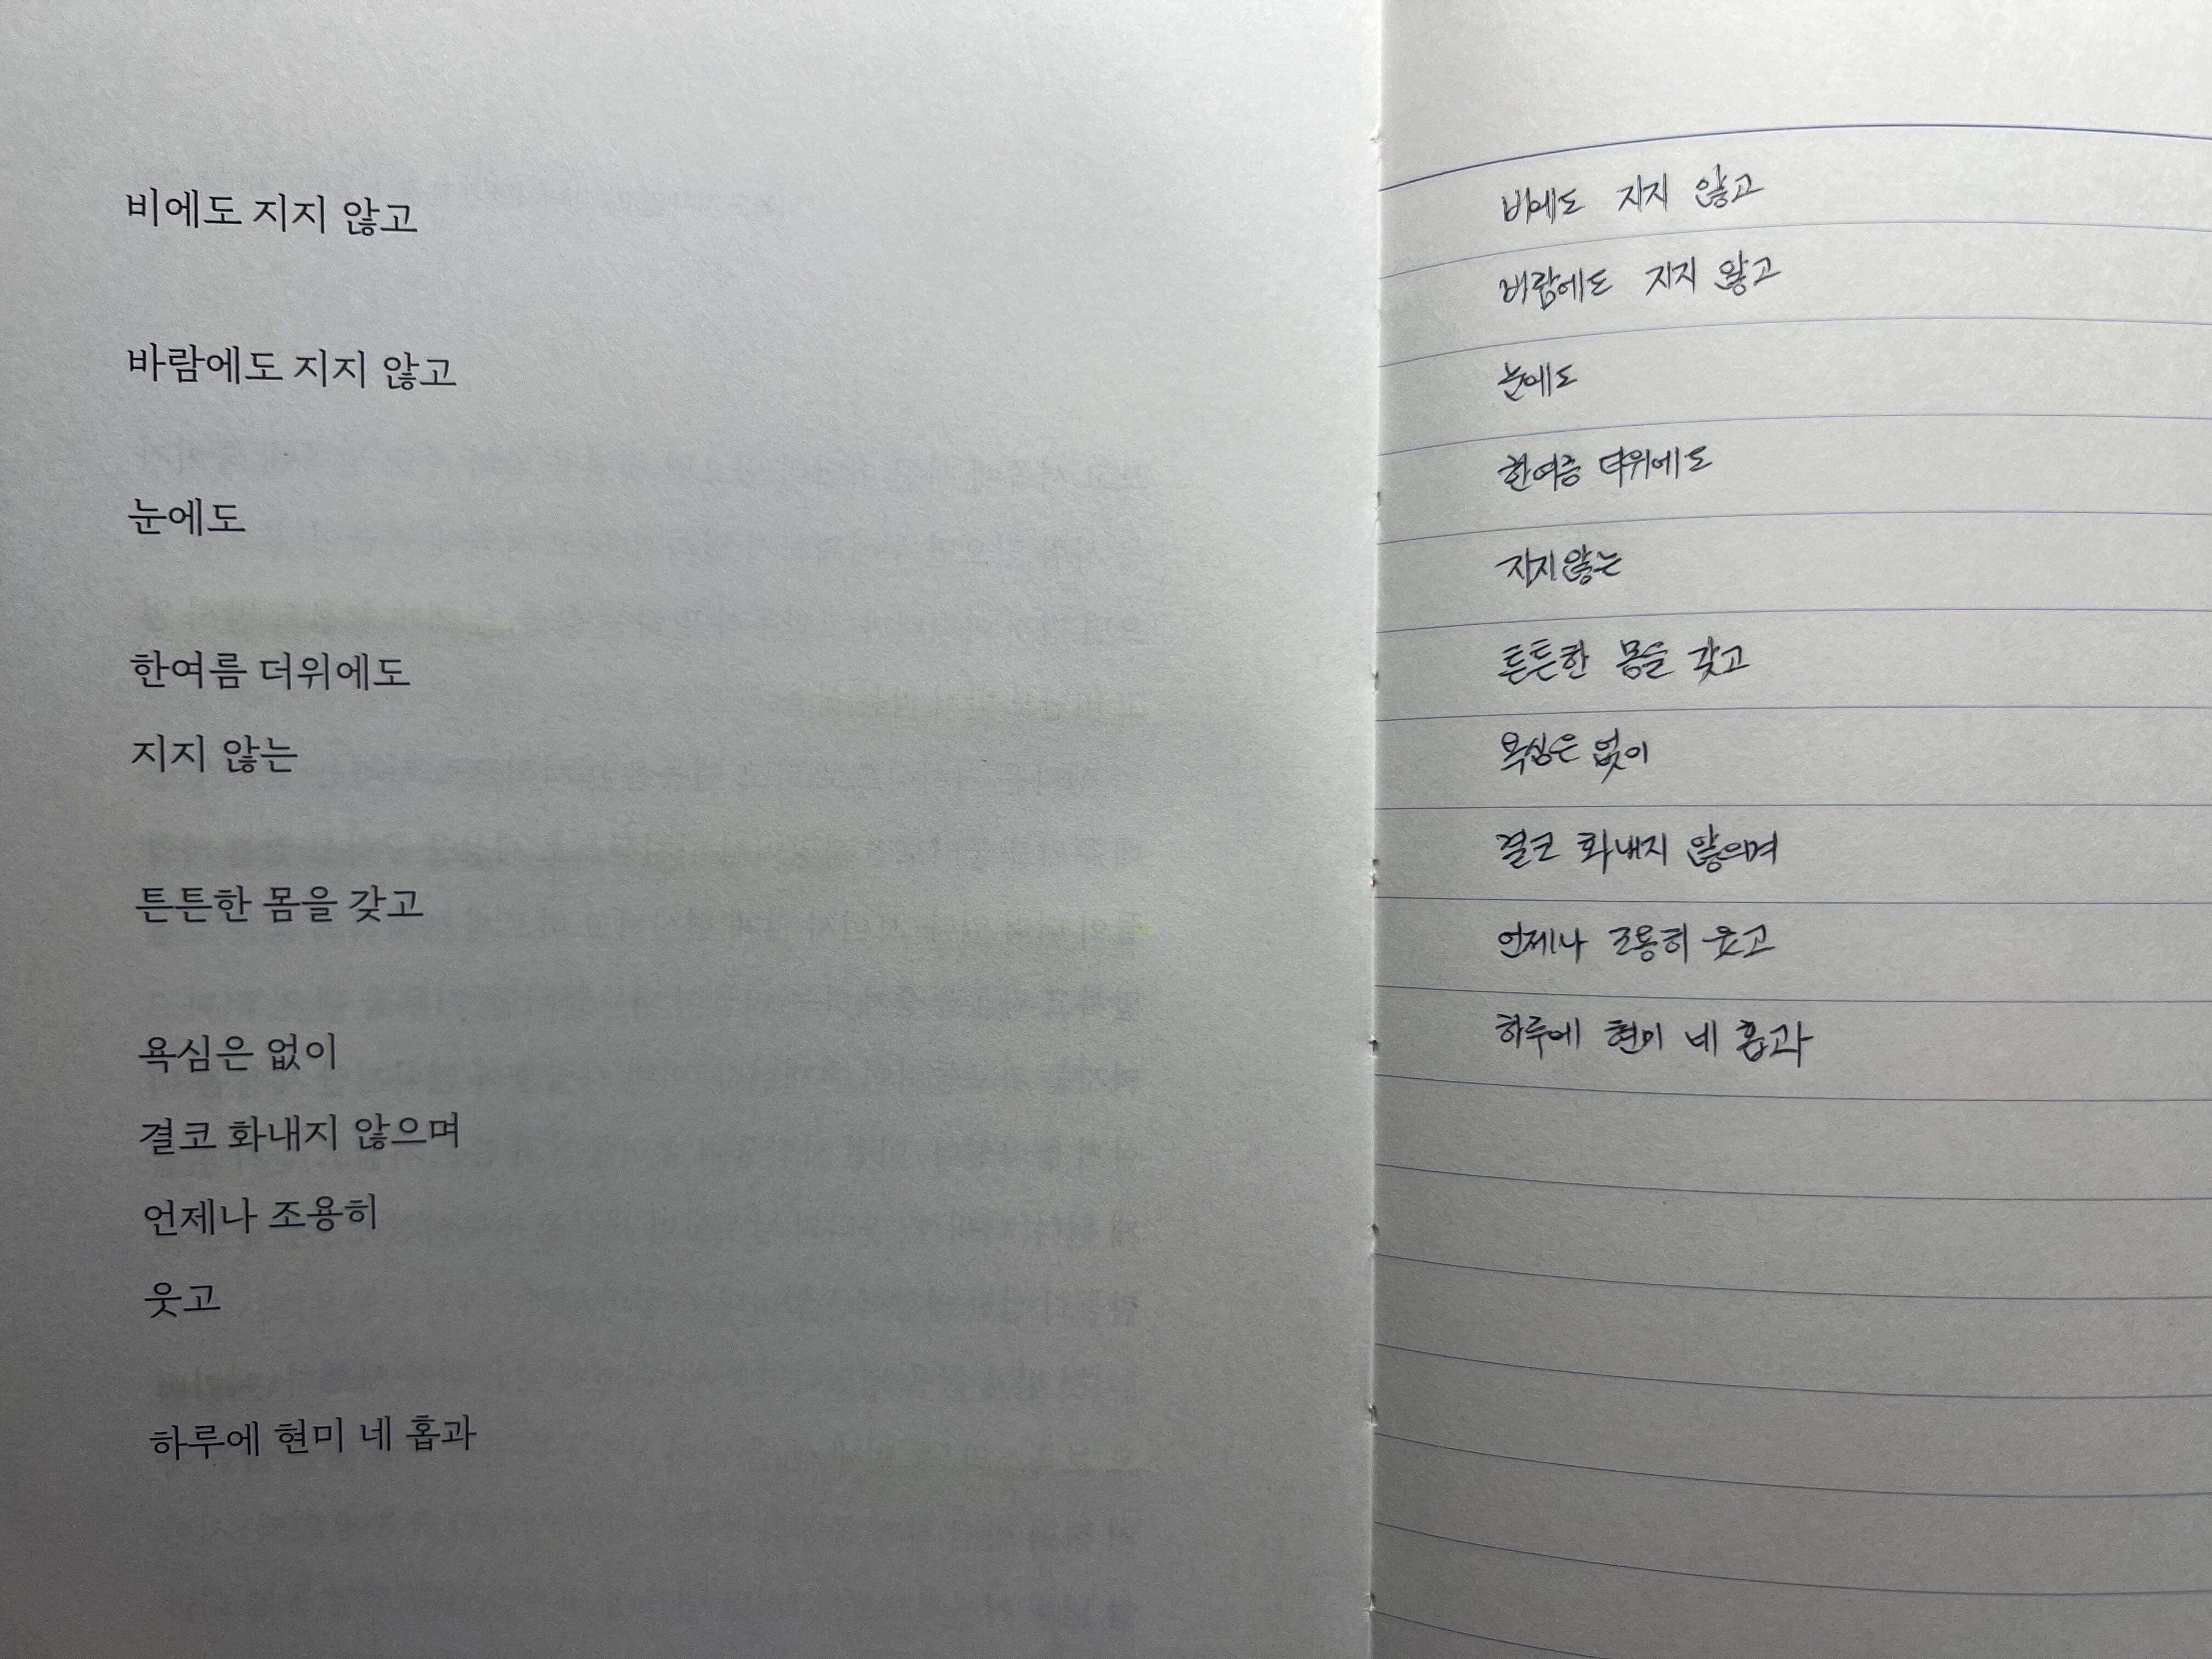 비에도 지지 않고
바람에도 지지 않고
눈에도
한여름 더위에도
지지 않는
튼튼한 몸을 갖고
욕심은 없이
결코 화내지 않으며
언제나 조용히
웃고
하루에 현미 네 홉과
비에도 지지 않고
바람에도 지지 않고
눈에도
한여름 더위에도
지지 않는
튼튼한 몸을 갖고
욕심은 없이
결코 화내지 않으며
언제나 조용히 웃고
하루에 현미 네 홉과